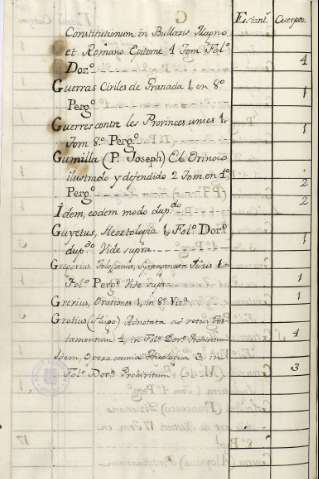 Estant.ˢ Cuerpos.
Constitutionum in Bullario Magno
et Romano Epitome 1 Tom Fol.º
Dor.º 4
Guerras Civiles de Granada 1. en 8.º
Perg.º 1
Guerres contre les Provinces unies 1.
Tom 8.º Perg.º 1
Gumilla (P. Joseph) El Orinoco
ilustrado y defendido 2 Tom. en 4.º
Perg.º 2
Idem, eodem modo dup.do 2
Guyetus, Heortologia 1. Fol.º Dor.º
dup.do Vide supra 1
Gregorius Tolosanus, Syntagma Juris 1.
Fol.º Perg.º Vide supra 1
Orationes 1. in 8.º 1
Grotius (Hugo) Adnotata ad
1. in Fol.º Dor.º 4
Idem, Opera omnia Theologica 3. in
Fol.º Dor.º Prohibitum 3